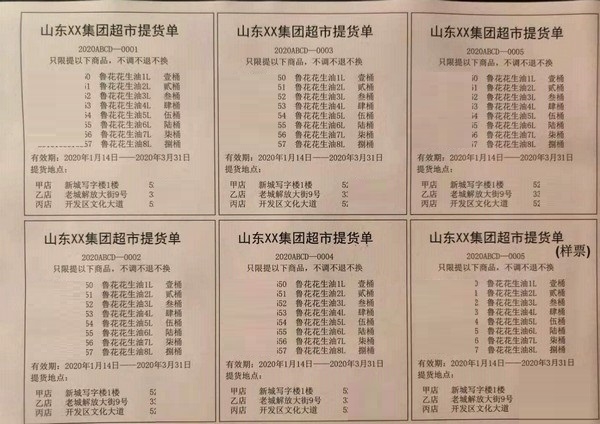 山东XX集团超市提货单
2020ABCD——0001
只限提以下商品，不调不退不换
50 鲁花花生油1L 壹桶
51 鲁花花生油2L 贰桶
52 鲁花花生油3L 叁桶
53 鲁花花生油4L 肆桶
54 鲁花花生油5L 伍桶
55 鲁花花生油6L 陆桶
56 鲁花花生油7L 柒桶
57 鲁花花生油8L 捌桶
有效期：2020年1月14日——2020年3月31日
提货地点：
甲店 新城写字楼1楼
乙店 老城解放大街9号
丙店 开发区文化大道
山东XX集团超市提货单
2020ABCD——0003
只限提以下商品，不调不退不换
50 鲁花花生油1L 壹桶
51 鲁花花生油2L 贰桶
52 鲁花花生油3L 叁桶
53 鲁花花生油4L 肆桶
54 鲁花花生油5L 伍桶
55 鲁花花生油6L 陆桶
56 鲁花花生油7L 柒桶
57 鲁花花生油8L 捌桶
有效期：2020年1月14日——2020年3月31日
提货地点：
甲店 新城写字楼1楼 52
乙店 老城解放大街9号
丙店 开发区文化大道 52
山东XX集团超市提货单
2020ABCD——0005
只限提以下商品，不调不退不换
鲁花花生油1L 壹桶
鲁花花生油2L 贰桶
鲁花花生油3L 叁桶
鲁花花生油4L 肆桶
鲁花花生油5L 伍桶
鲁花花生油6L 陆桶
鲁花花生油7L 柒桶
鲁花花生油8L 捌桶
有效期：2020年1月14日——2020年3月31日
提货地点：
甲店 新城写字楼1楼 52
乙店 老城解放大街9号
丙店 开发区文化大道 52
山东XX集团超市提货单
2020ABCD——0002
只限提以下商品，不调不退不换
50 鲁花花生油1L 壹桶
51 鲁花花生油2L 贰桶
52 鲁花花生油3L 叁桶
53 鲁花花生油4L 肆桶
54 鲁花花生油5L 伍桶
55 鲁花花生油6L 陆桶
56 鲁花花生油7L 柒桶
57 鲁花花生油8L 捌桶
有效期：2020年1月14日——2020年3月31日
提货地点：
甲店 新城写字楼1楼 52
乙店 老城解放大街9号
丙店 开发区文化大道 52
山东XX集团超市提货单
2020ABCD——0004
只限提以下商品，不调不退不换
50 鲁花花生油1L 壹桶
51 鲁花花生油2L 贰桶
52 鲁花花生油3L 叁桶
53 鲁花花生油4L 肆桶
54 鲁花花生油5L 伍桶
55 鲁花花生油6L 陆桶
56 鲁花花生油7L 柒桶
57 鲁花花生油8L 捌桶
有效期：2020年1月14日——2020年3月31日
提货地点：
甲店 新城写字楼1楼
乙店 老城解放大街9号
丙店 开发区文化大道
山东XX集团超市提货单
(样票)
2020ABCD——0005
只限提以下商品，不调不退不换
0 鲁花花生油1L 壹桶
1 鲁花花生油2L 贰桶
2 鲁花花生油3L 叁桶
3 鲁花花生油4L 肆桶
4 鲁花花生油5L 伍桶
5 鲁花花生油6L 陆桶
6 鲁花花生油7L 柒桶
7 鲁花花生油8L 捌桶
有效期：2020年1月14日——2020年3月31日
提货地点：
甲店 新城写字楼1楼
乙店 老城解放大街9号
丙店 开发区文化大道